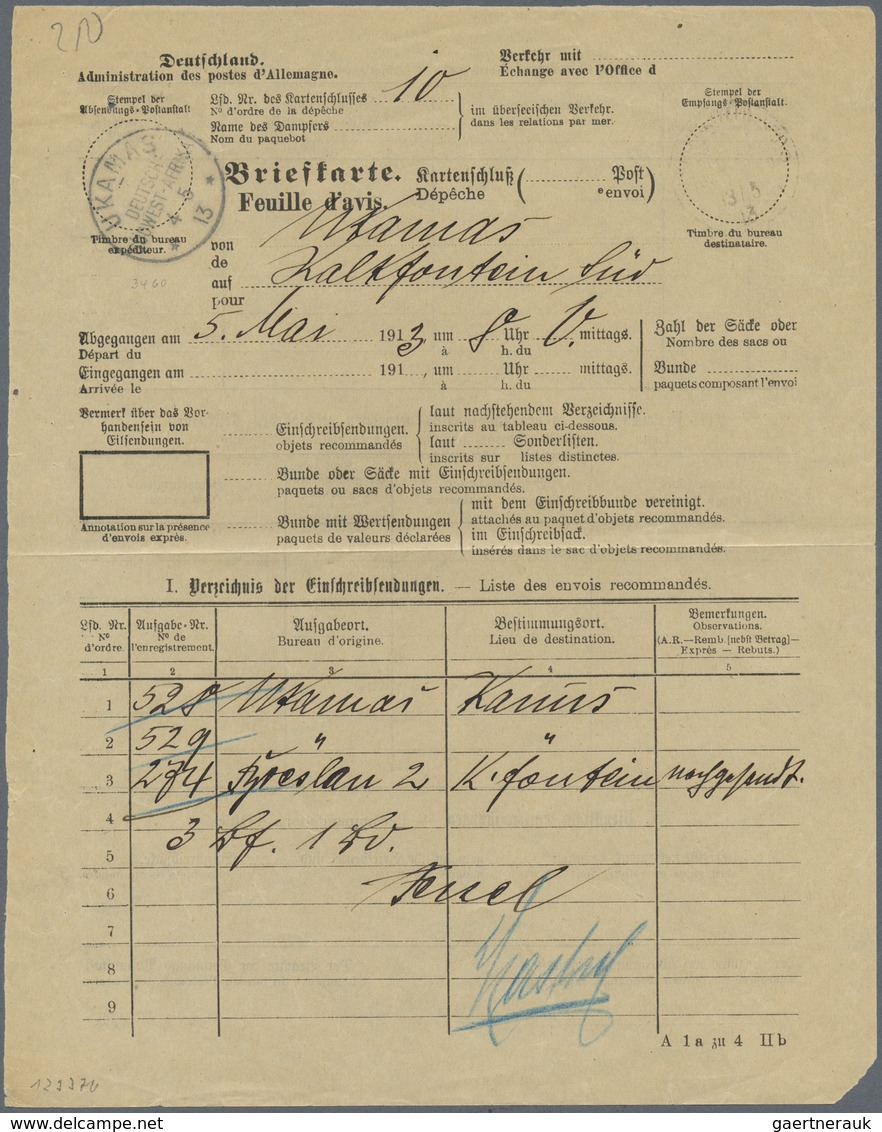 Deutschland.
Administration des postes d'Allemagne.
Verkehr mit
Échange avec l'Office d
Stempel der
Absendungs-Postanstalt.
Lfd. Nr. des Kartenschlusses 10
N° d'ordre de la dépêche
Name des Dampfers
Nom du paquebot
im überseeischen Verkehr.
dans les relations par mer.
Stempel der
Empfangs-Postanstalt.
UKAMAS
DEUTSCH-
SÜDWEST-AFRIKA
4 5
13
13 5
13
Timbre du bureau
expéditeur.
Timbre du bureau
destinataire.
Briefkarte. Kartenschluß ( Post )
Feuille d'avis. Dépêche ( envoi )
von Ukamas
de
auf Kalkfontein Süd
pour
3460
Abgegangen am 5. Mai 1913, um 8 Uhr V. mittags.
Départ du à h. du
Eingegangen am 191 , um Uhr mittags.
Arrivée le à h. du
Zahl der Säcke oder
Nombre des sacs ou
Bunde
paquets composant l'envoi
Vermerk über das Vor-
handensein von
Eilsendungen.
Annotation sur la présence
d'envois exprès.
Einschreibsendungen.
objets recommandés
laut nachstehendem Verzeichnisse.
inscrits au tableau ci-dessous.
laut Sonderlisten.
inscrits sur listes distinctes.
Bunde oder Säcke mit Einschreibsendungen.
paquets ou sacs d'objets recommandés.
Bunde mit Wertsendungen
paquets de valeurs déclarées
mit dem Einschreibbunde vereinigt.
attachés au paquet d'objets recommandés.
im Einschreibsack.
insérés dans le sac d'objets recommandés.
I. Verzeichnis der Einschreibsendungen. — Liste des envois recommandés.
Lfd. Nr. N° d'ordre.
Aufgabe-Nr. N° de l'enregistrement.
Aufgabeort. Bureau d'origine.
Bestimmungsort. Lieu de destination.
Bemerkungen. Observations. (A.R.—Remb. [nebst Betrag]— Exprès — Rebuts.)
1 2 3 4 5
1 528 Ukamas Kanus
2 529 " "
3 274 Breslau 2 K. fontein nachgesandt.
4 3 Bf. 1 Bd.
5
6
7
8
9
A 1a zu 4 IIb
gaertnerauk